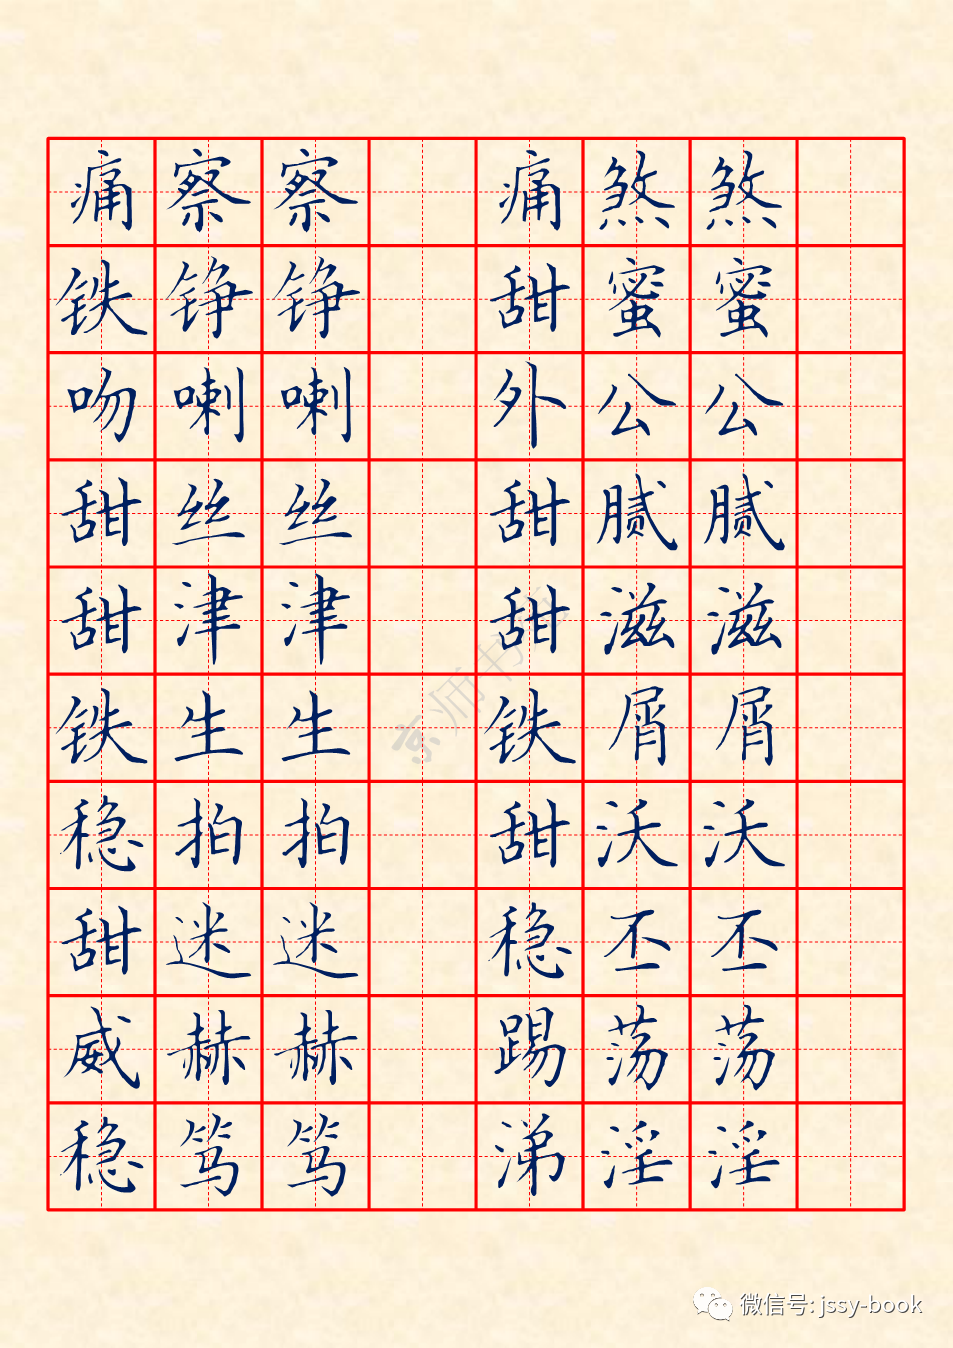 痛察察 痛煞煞
铁铮铮 甜蜜蜜
吻喇喇 外公公
甜丝丝 甜腻腻
甜津津 甜滋滋
铁生生 铁屑屑
稳拍拍 甜沃沃
甜迷迷 稳丕丕
威赫赫 踢荡荡
稳笃笃 涕淫淫
京师书
微信号: jssy-book